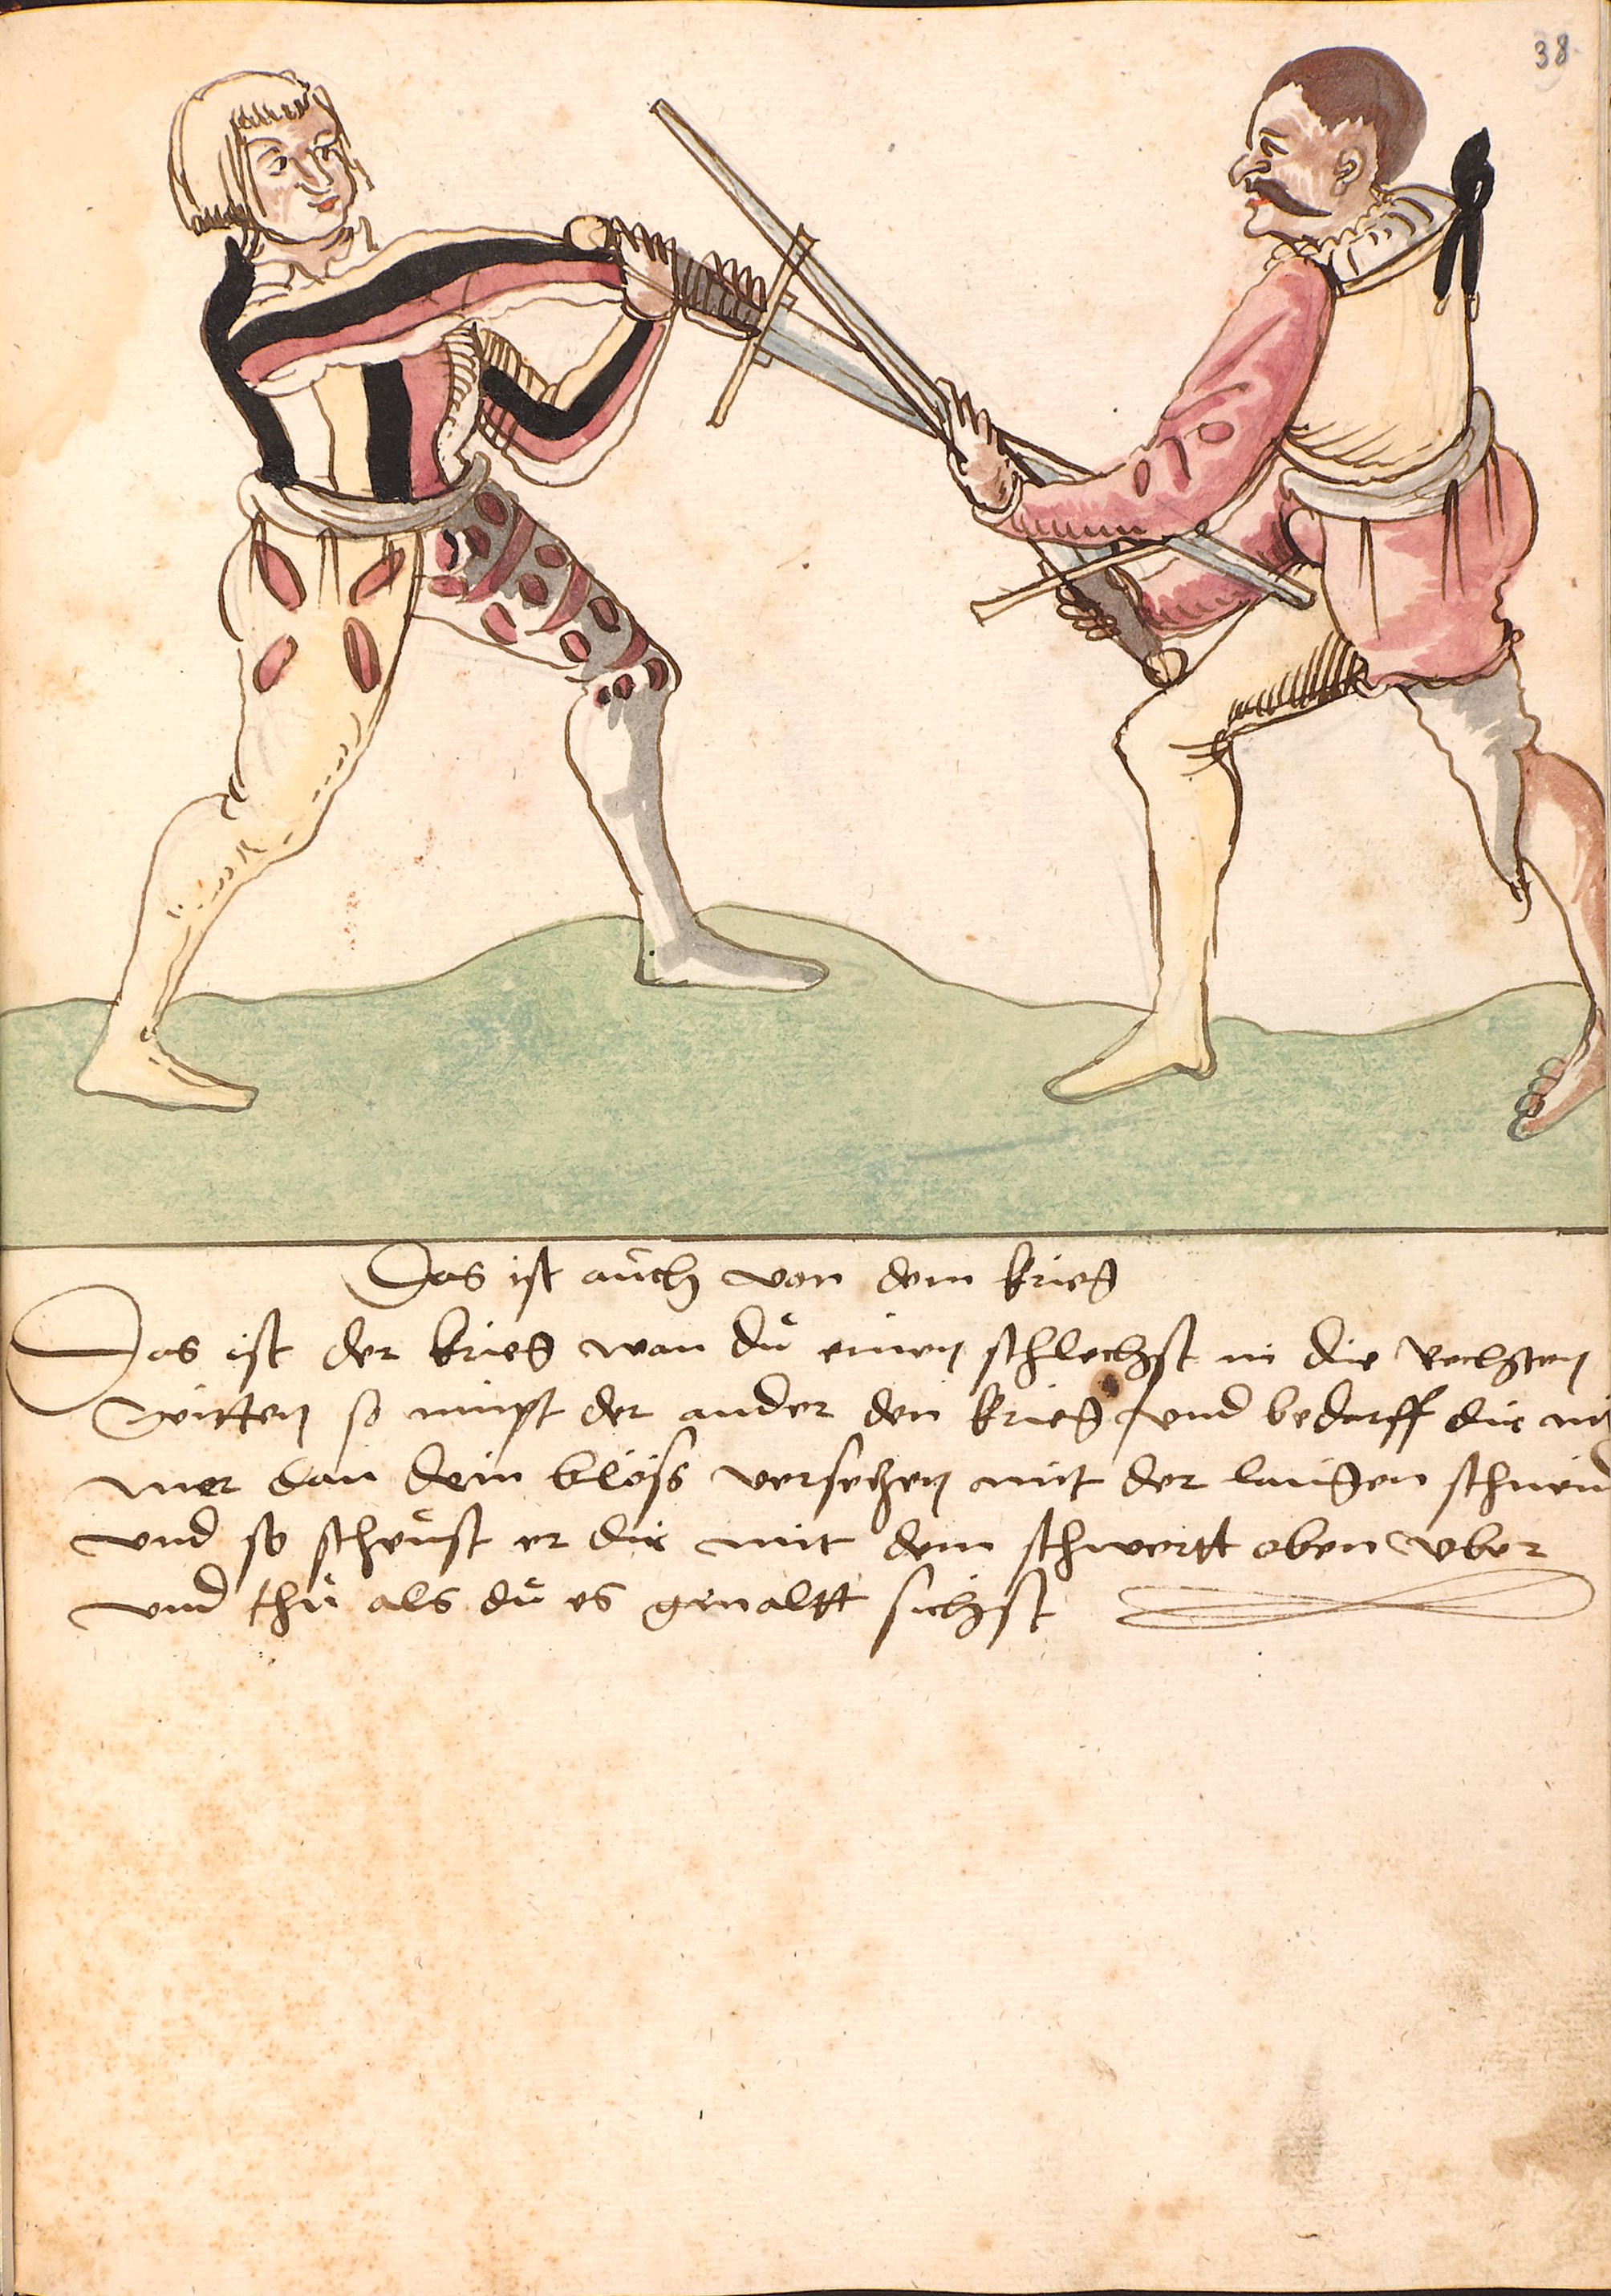 38
Das ist auch von dem krieg
Das ist der krieg wan du einen schlechst in die rechten
seitten so nimpt der ander den krieg und bedarff die ni
mer dan dein blöss versetzen mit der langen schneid
und so scheust er dir mit dem schwertt oben vber
und thů als dů es gmaltt sichst